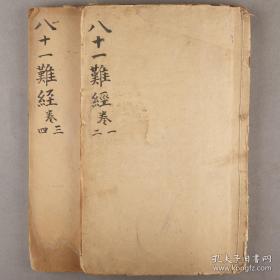 八十一難經卷一二
八十一難経卷三四
孔夫子旧书网